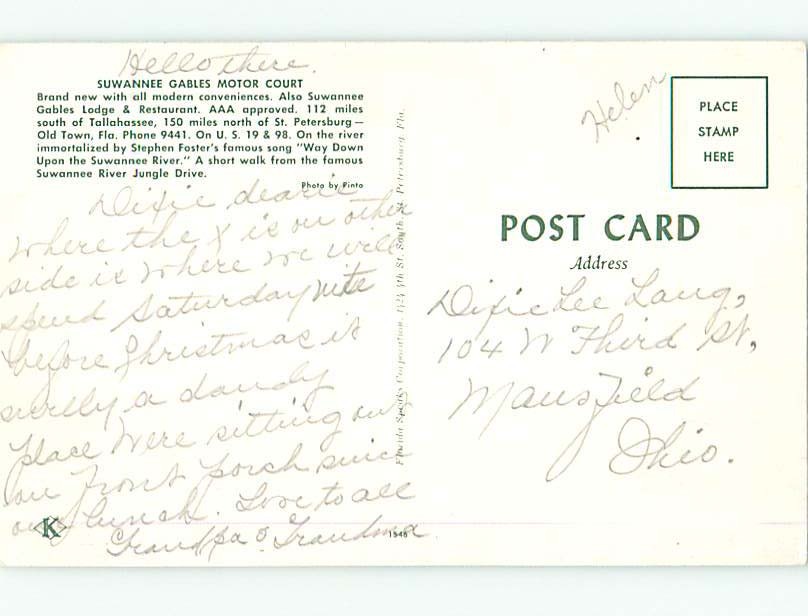 Hello there.
SUWANNEE GABLES MOTOR COURT
Brand new with all modern conveniences. Also Suwannee
Gables Lodge & Restaurant. AAA approved. 112 miles
south of Tallahassee, 150 miles north of St. Petersburg —
Old Town, Fla. Phone 9441. On U. S. 19 & 98. On the river
immortalized by Stephen Foster's famous song "Way Down
Upon the Suwannee River." A short walk from the famous
Suwannee River Jungle Drive.
Photo by Pinto
Dixie dearie
where the X is on other
side is where we will
spend Saturday nite
before Christmas it
surely a dandy
place were sitting out
on front porch since
our lunch. Love to all
Grandpa & Grandma
K
1548
Florida Souvenir Corporation, 1424 4th St. South, St. Petersburg, Fla.
Helen
PLACE
STAMP
HERE
POST CARD
Address
Dixie Lee Lang,
104 W Third St,
Mansfield
Ohio.